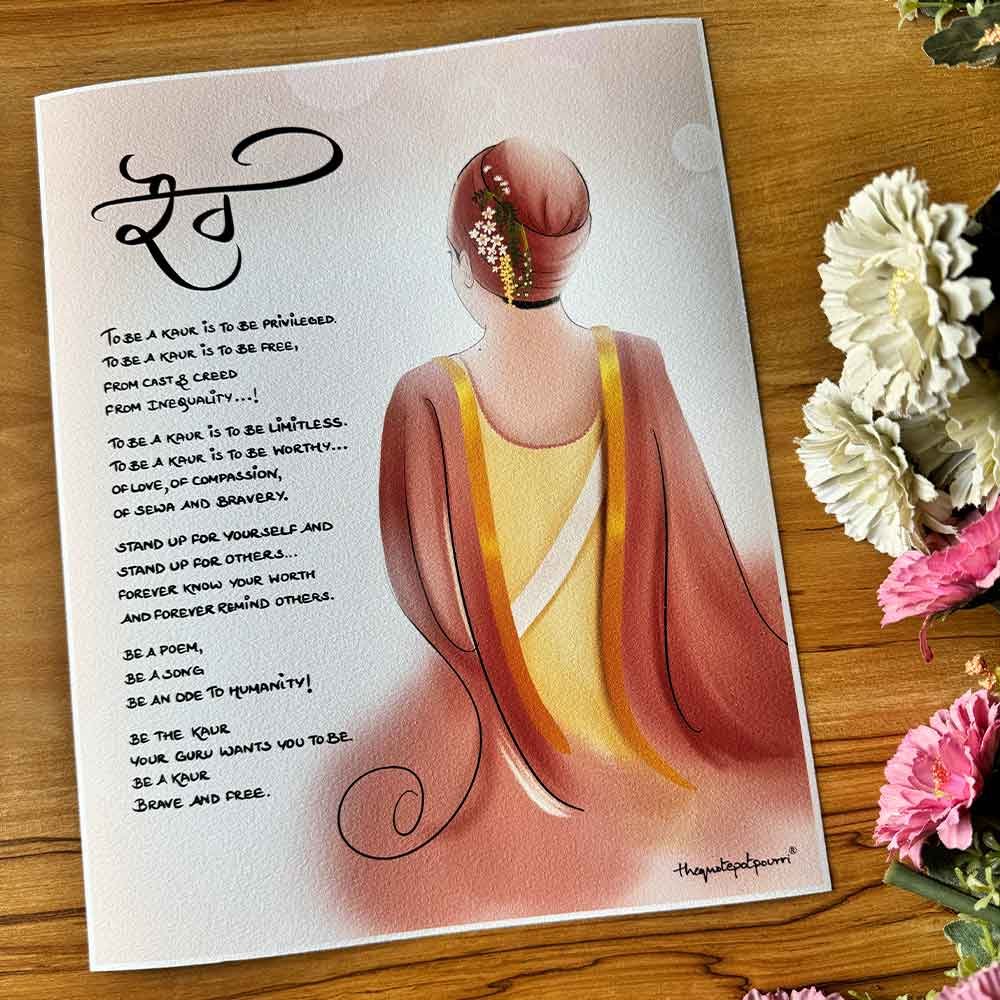 ਕੌਰ
TO BE A KAUR IS TO BE PRIVILEGED.
TO BE A KAUR IS TO BE FREE,
FROM CAST & CREED
FROM INEQUALITY...!
TO BE A KAUR IS TO BE LIMITLESS.
TO BE A KAUR IS TO BE WORTHY...
OF LOVE, OF COMPASSION,
OF SEWA AND BRAVERY.
STAND UP FOR YOURSELF AND
STAND UP FOR OTHERS...
FOREVER KNOW YOUR WORTH
AND FOREVER REMIND OTHERS.
BE A POEM,
BE A SONG
BE AN ODE TO HUMANITY!
BE THE KAUR
YOUR GURU WANTS YOU TO BE.
BE A KAUR
BRAVE AND FREE.
thequotepotpourri®